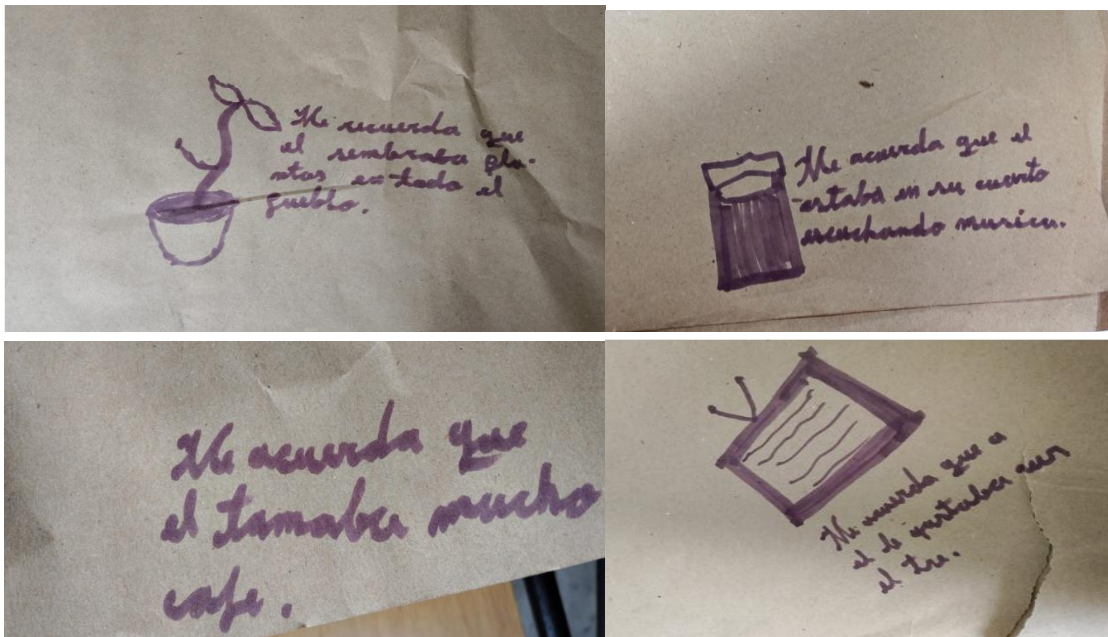 Me recuerda que
el sembraba pla-
ntas en todo el
pueblo.
Me acuerda que el
estaba en su cuarto
escuchando musica.
Me acuerda que
el tomaba mucho
cafe.
Me acuerda que a
el le gustaba ver
el tre.